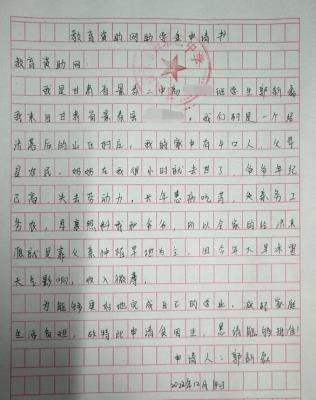 教育资助网助学金申请书
教育资助网：
我是甘肃省景泰二中高 班学生郭新磊
我来自甘肃省景泰县 ，我们村是一个经
济落后的山区村庄，我的家中有4口人，父母
是农民，奶奶在我很小时就去世了，爷爷年纪
已高，失去劳动力，长年患病吃药，父亲务工
务农，母亲照料我和爷爷，所以全家的经济来
源就是靠父亲种植旱地为主，因今年天旱来雷
大受影响，收入微薄。
为能够更好地完成自己的学业，减轻家庭
生活负担，故特此申请贫困生，恳请能够批准！
申请人：郭新磊
2022年12月14日
二中学